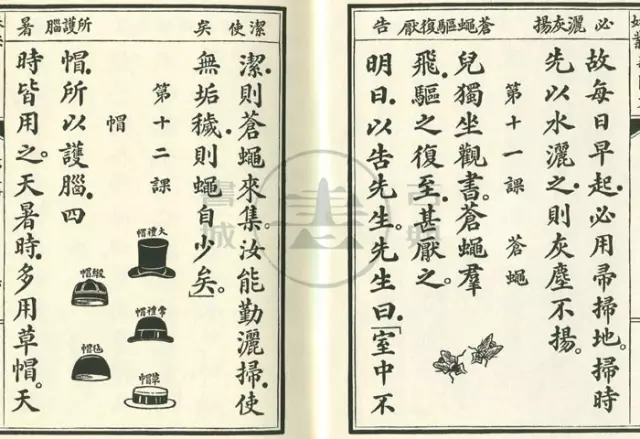 必 灑灰揚 蒼蠅驅復厭 告
故每日早起。必用帚掃地。掃時
先以水灑之。則灰塵不揚。
第十一課 蒼蠅
兒獨坐觀書。蒼蠅羣
飛。驅之復至。甚厭之。
明日。以告先生。先生曰。「室中不
潔使 矣 所護腦 暑
潔。則蒼蠅來集。汝能勤灑掃。使
無垢穢。則蠅自少矣。」
第十二課
帽
大禮帽
常禮帽
草帽
緞帽
帽。所以護腦。四
時皆用之。天暑時。多用草帽。天
古典
書城